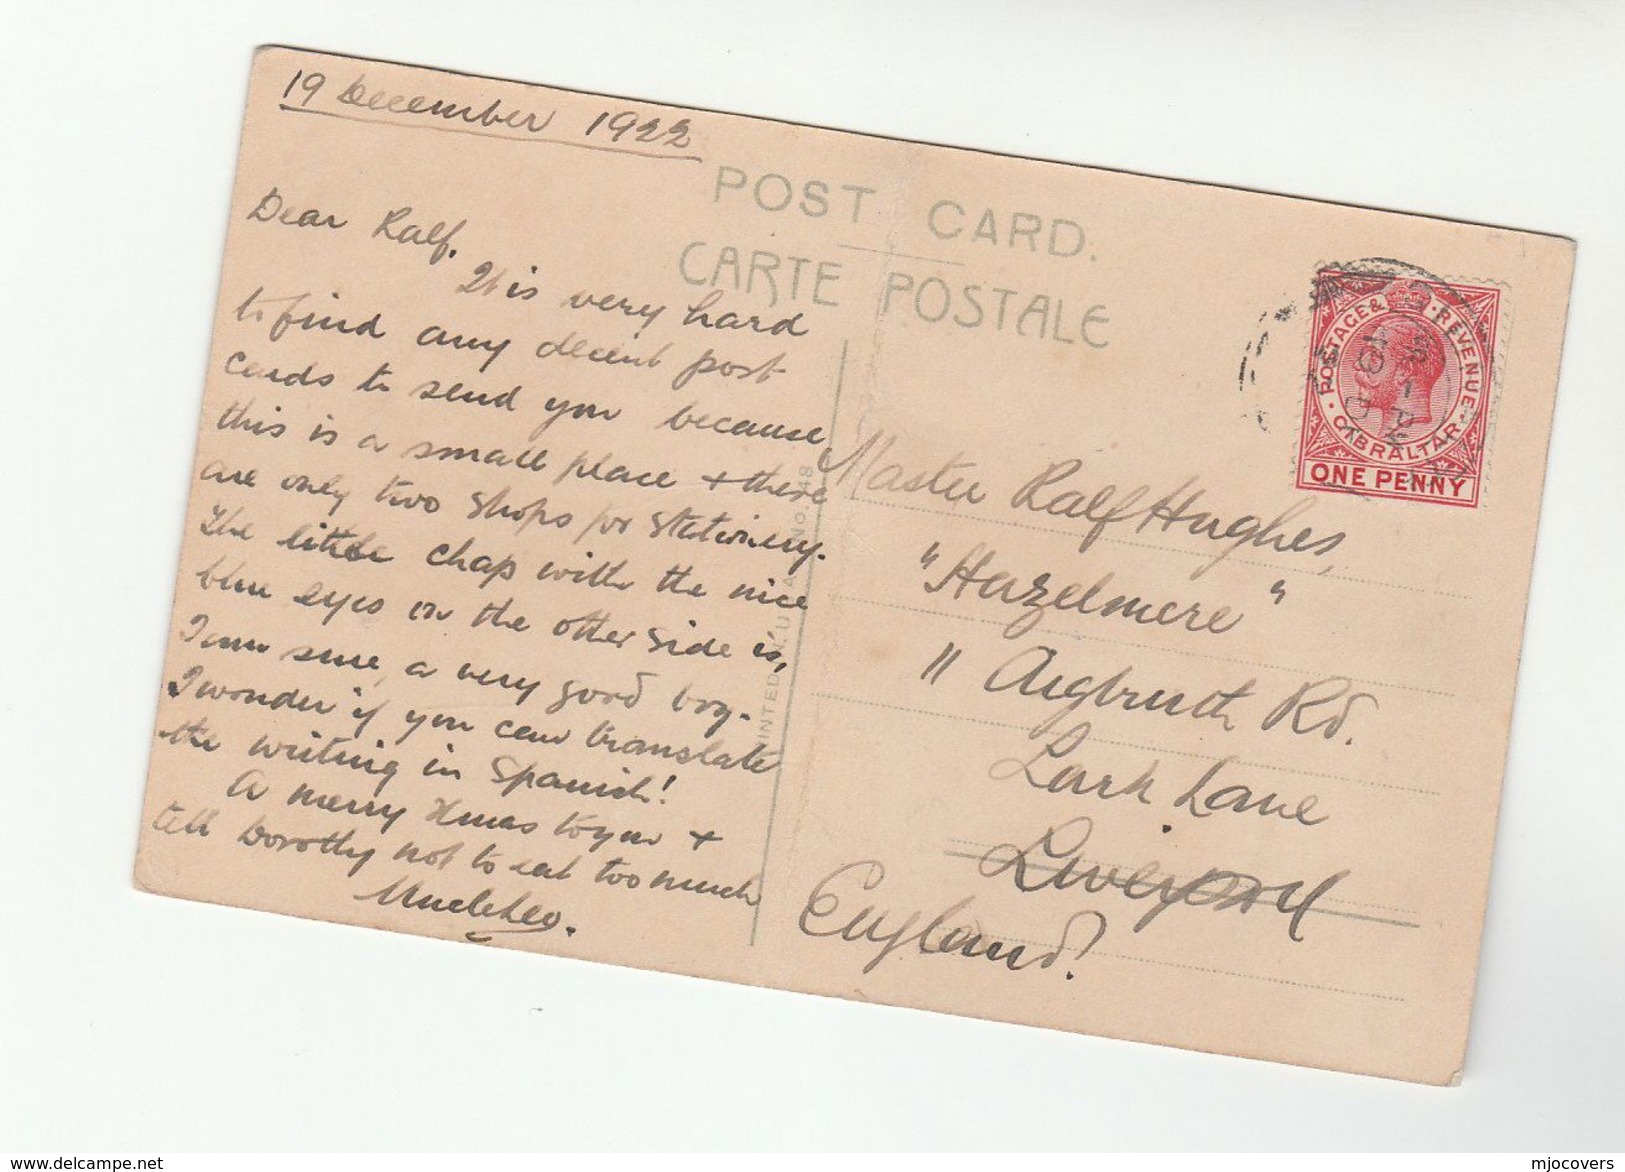 19 December 1922
POST CARD.
CARTE POSTALE
Dear Ralf.
It is very hard
to find any decent post
cards to send you because
this is a small place + there
are only two shops for stationery.
The little chap with the nice
blue eyes on the other side is,
I am sure, a very good boy.
I wonder if you can translate
the writing in Spanish!
A merry Xmas to you +
tell Dorothy not to eat too much
Uncle Leo.
POSTAGE & REVENUE
GIBRALTAR
ONE PENNY
Master Ralf Hughes,
"Hazelmere"
11 Aigburth Rd.
Lark Lane
Liverpool
England.
mjocovers